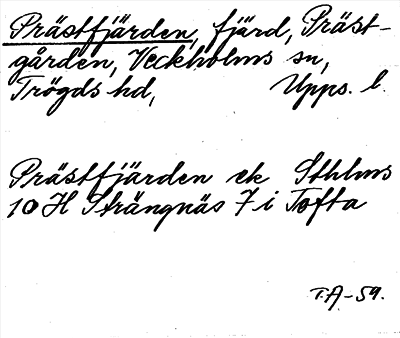 Prästfjärden, fjärd, Präst-
gården, Veckholms sn,
Trögds hd, Upps. l.
Prästfjärden ek Sthlms
10 H Strängnäs 7 i Tofta
T.A-59.